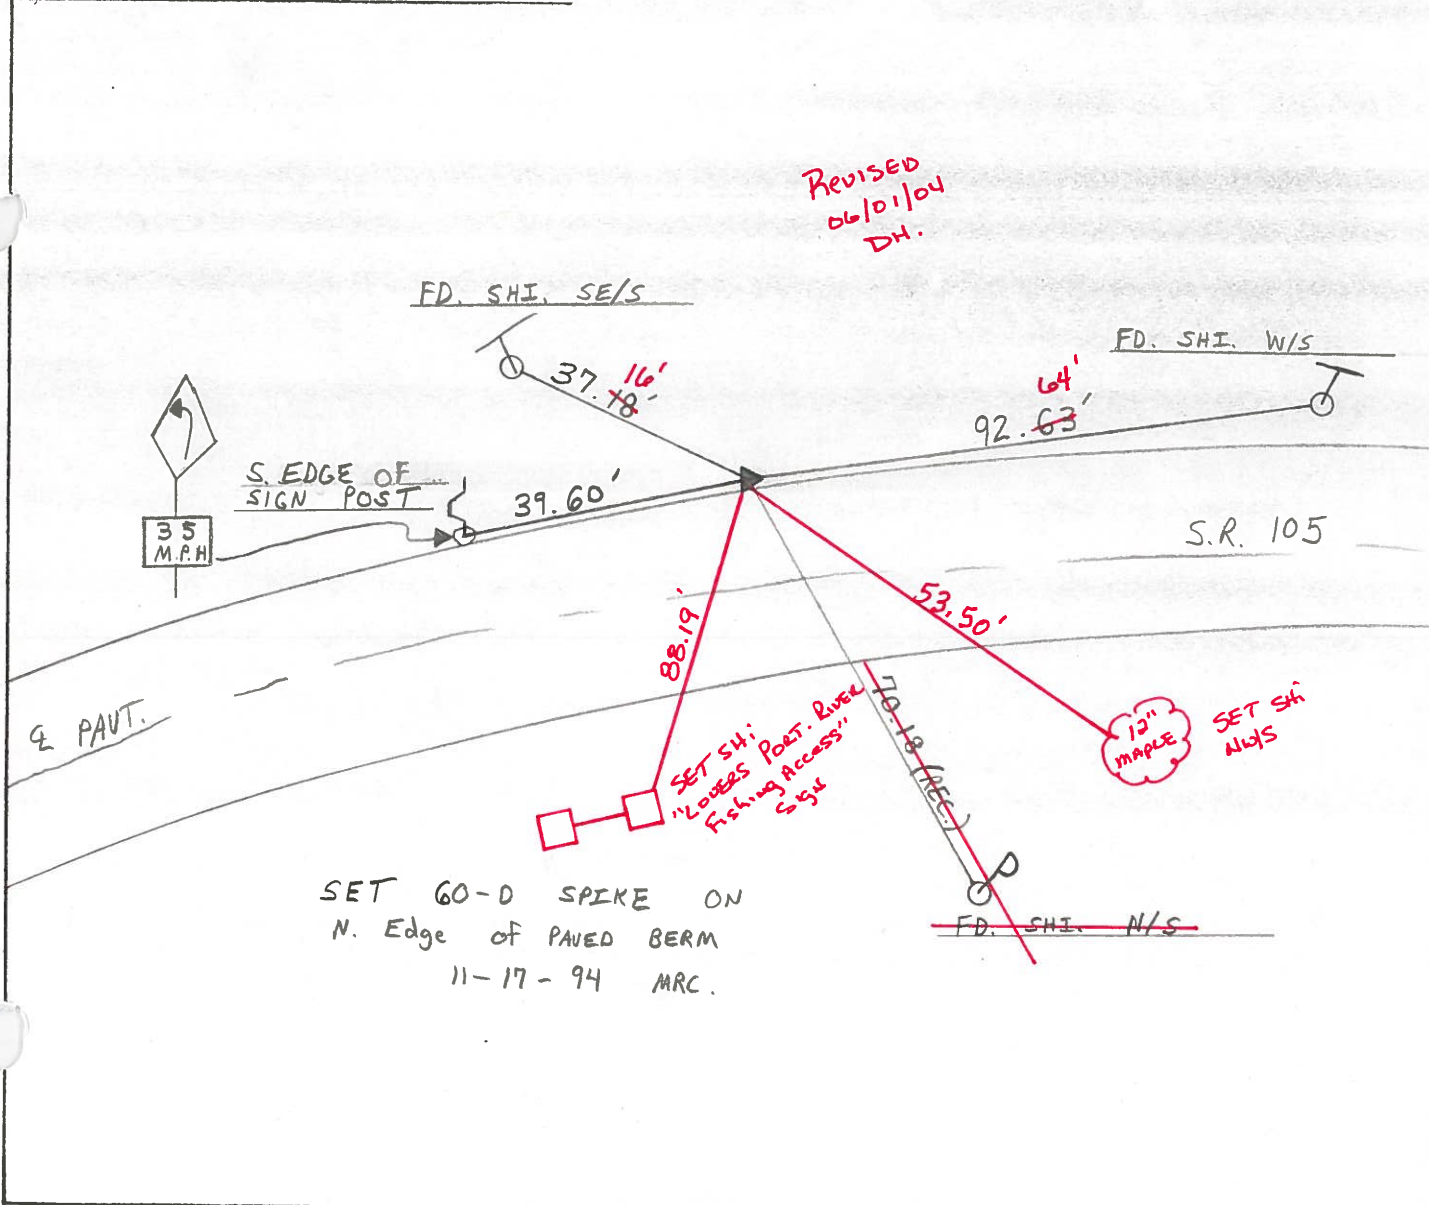 REVISED
06/01/04
DH.
FD. SHI. SE/S
FD. SHI. W/S
16'
37.18'
64'
92.63'
S. EDGE OF
SIGN POST
39.60'
35
M.P.H
S.R. 105
53.50'
88.19'
℄ PAVT.
70.18 (REC.)
SET SHi
"LOVERS PORT. RIVER
Fishing Access"
Sign
12"
MAPLE
SET SHi
NW/S
SET 60-D SPIKE ON
N. Edge of PAVED BERM
11-17-94 MRC.
FD. SHI. N/S